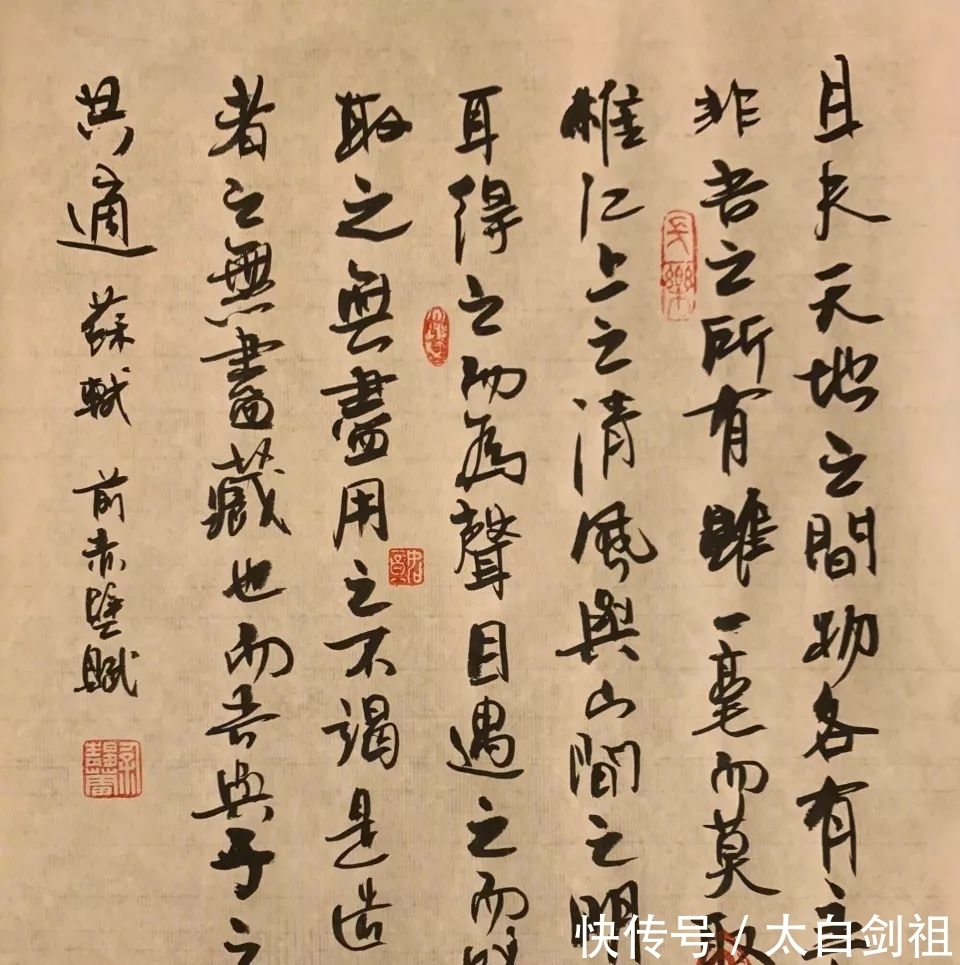 且夫天地之間物各有主
非吾之所有雖一毫而莫取
惟江上之清風與山間之明
耳得之而為聲目遇之而
取之無盡用之不竭是造
者之無盡藏也而吾與子之
共適 蘇軾 前赤壁賦
快传号 / 太白剑祖